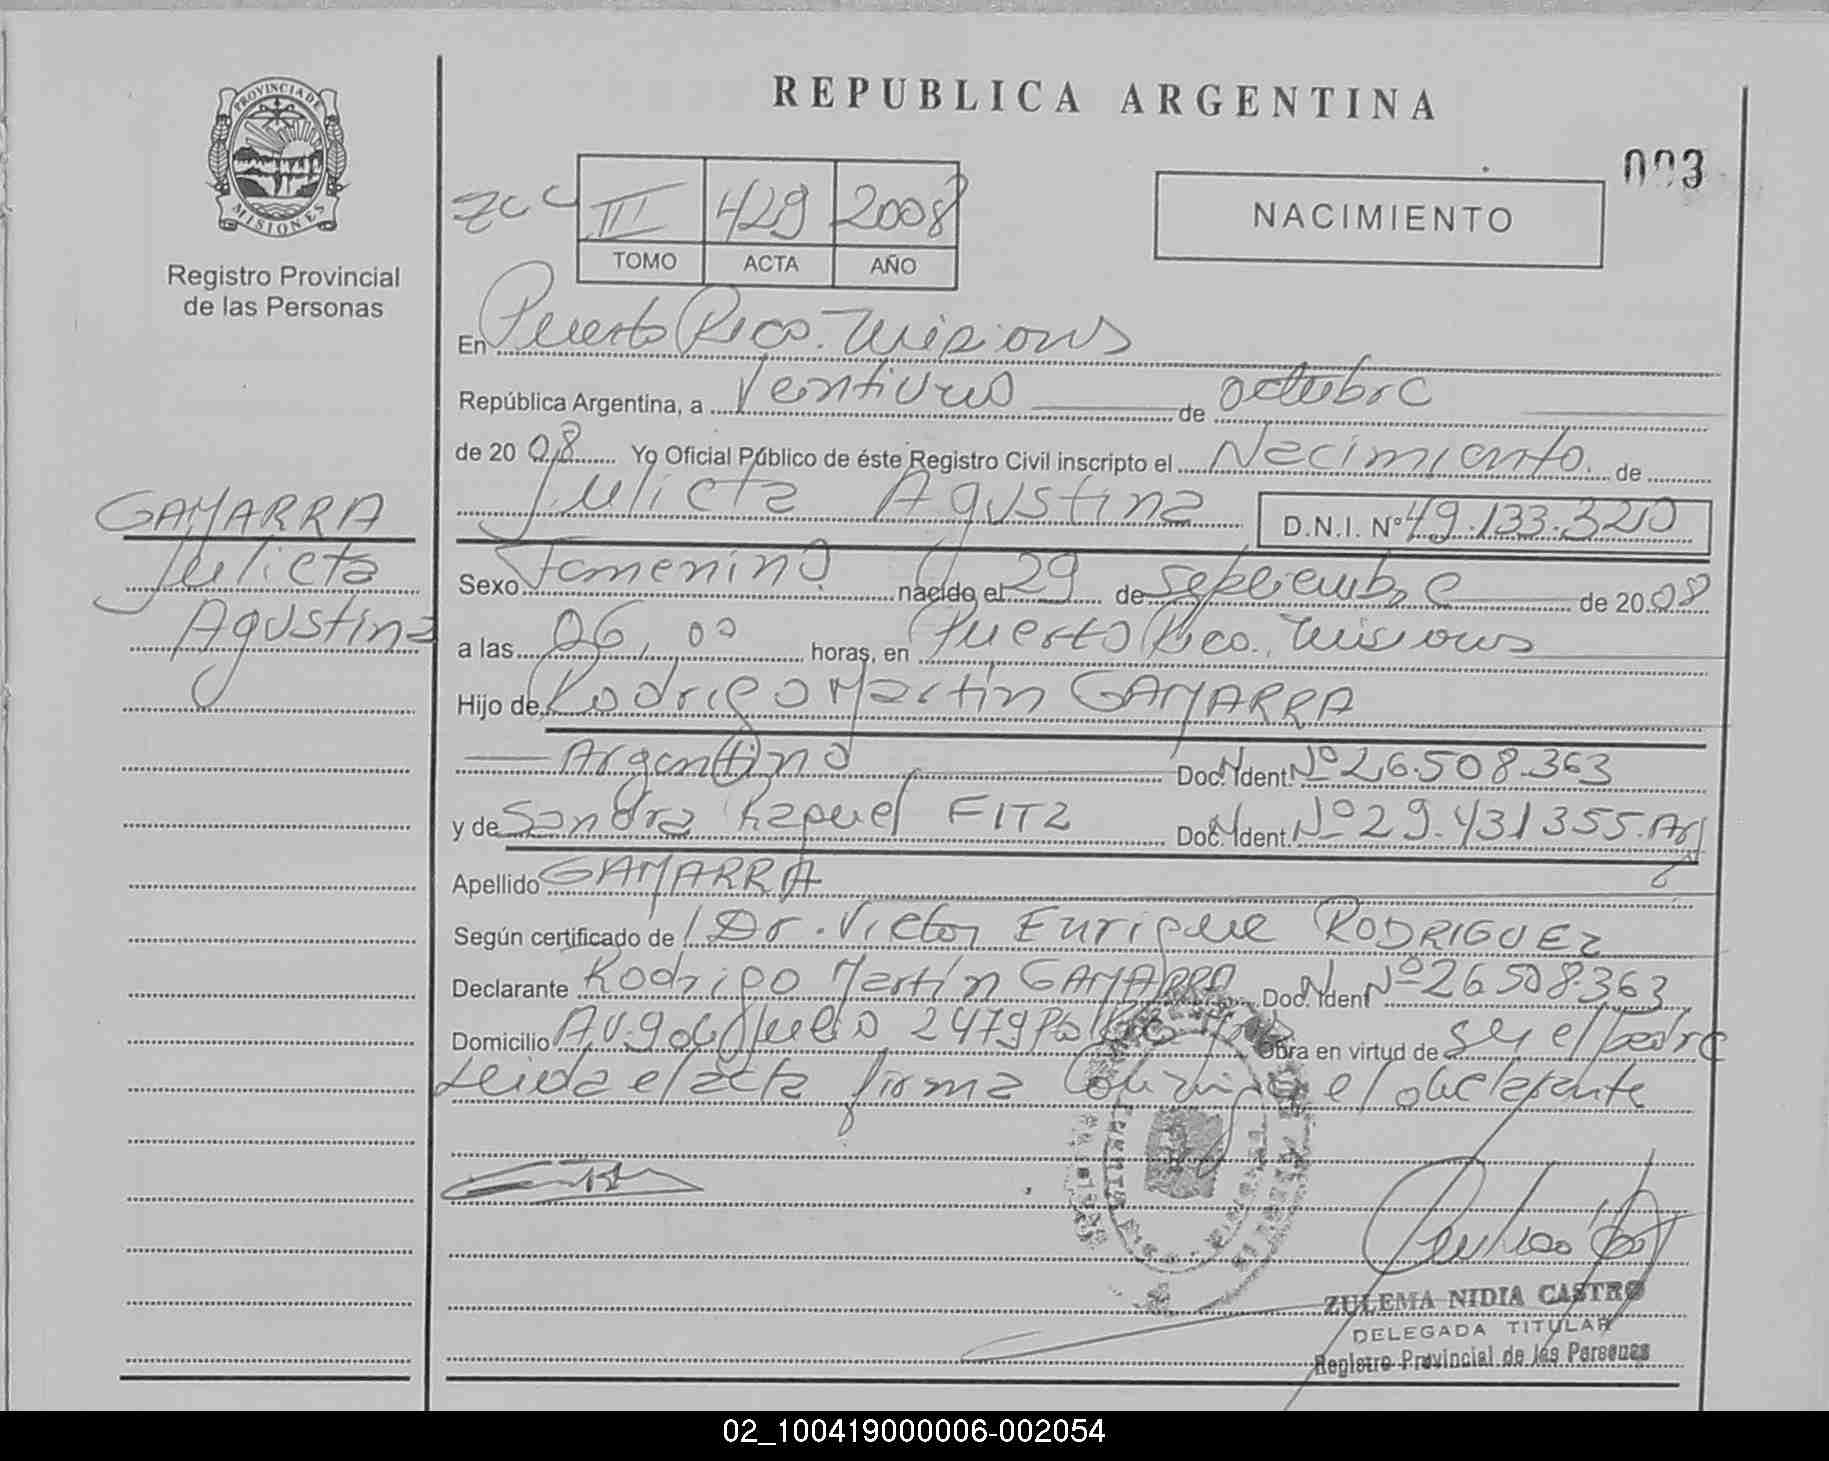 PROVINCIA DE
MISIONES
Registro Provincial
de las Personas
REPUBLICA ARGENTINA
003
III 429 2008
TOMO ACTA AÑO
NACIMIENTO
En Puerto Rico. Misiones
República Argentina, a Veintiuno de octubre
de 20 08 Yo Oficial Público de éste Registro Civil inscripto el Nacimiento. de
Julieta Agustina D.N.I. Nº 49.133.320
GAMARRA
Julieta
Agustina
Sexo Femenino. nacido el 29 de septiembre de 20 08
a las 06,00 horas, en Puerto Rico. Misiones
Hijo de Rodrigo Martín GAMARRA
Argentino Doc. Ident. Nº 26.508.363
y de Sandra Raquel FITZ Doc. Ident. Nº 29.431355. Arg
Apellido GAMARRA
Según certificado de Dr. Victor Enrique RODRIGUEZ
Declarante Rodrigo Martín GAMARRA Doc. Ident Nº 26508.363
Domicilio Av. 9 de Julio 2479 Obra en virtud de ser el padre
Leida el acta firma el declarante
ZULEMA NIDIA CASTRO
DELEGADA TITULAR
Registro Provincial de las Personas
02_100419000006-002054